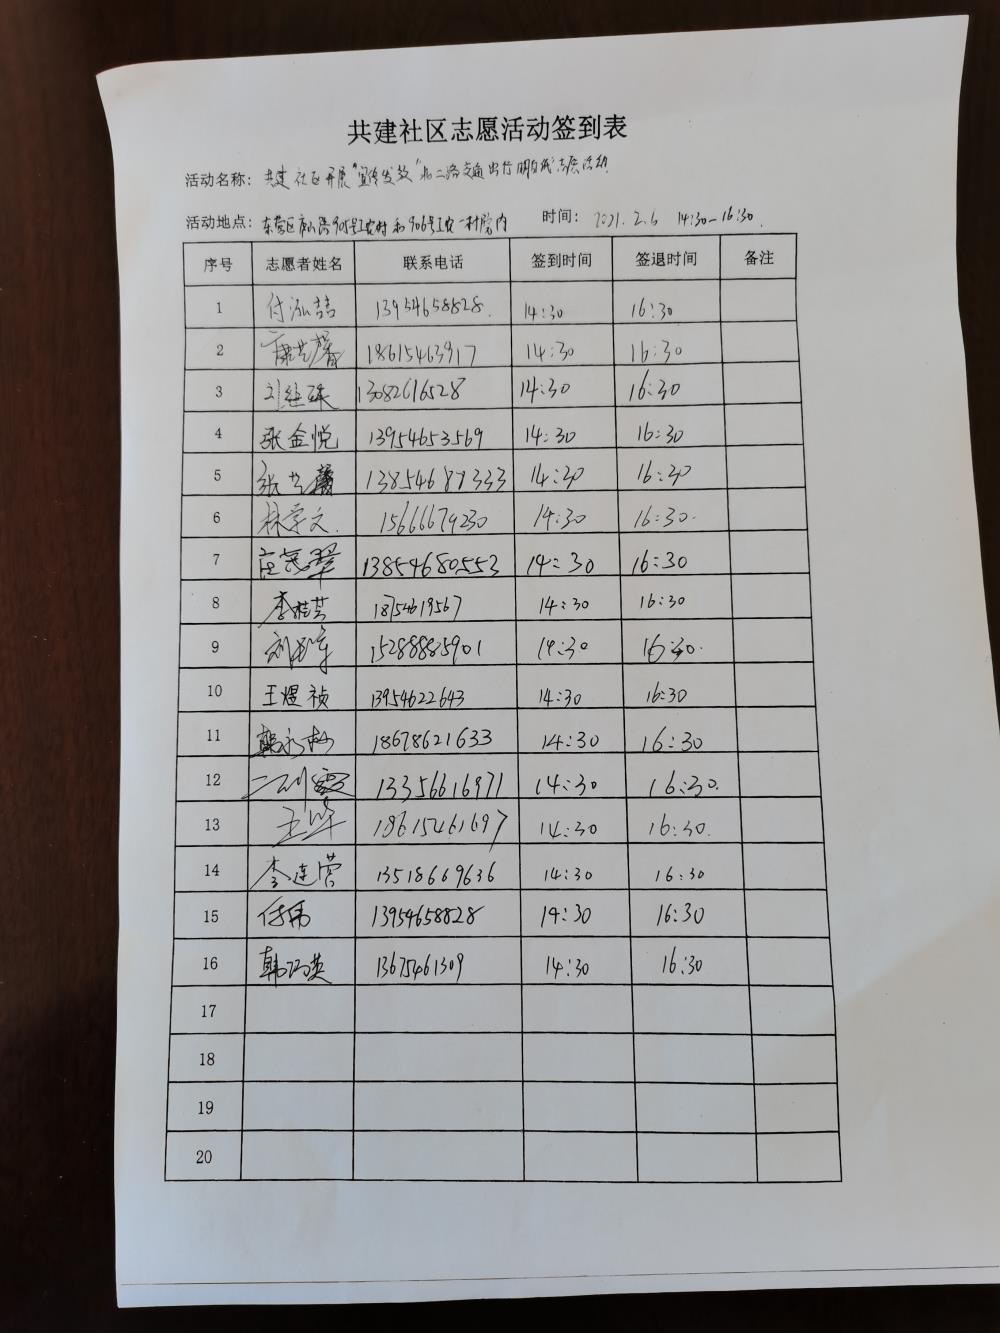 共建社区志愿活动签到表
活动名称: 共建社区开展"宣传发放"北二路交通出行明白纸志愿活动
活动地点: 东营区 905号工农村和906号工农一村院内 时间: 2021.2.6 14:30-16:30.
序号 志愿者姓名 联系电话 签到时间 签退时间 备注
1 付泓喆 13954658828. 14:30 16:30
2 18615463917 14:30 16:30
3 刘继珠 13082616528 14:30 16:30
4 张金悦 13954653569 14:30 16:30
5 张兰馨 13854687333 14:30 16:30
6 林学文. 15666679230 14:30 16:30.
7 13854680553 14:30 16:30
8 李桂芸 18754619567 14:30 16:30
9 15288885901 14:30 16:30.
10 王煜祯 13954622643 14:30 16:30
11 18678621633 14:30 16:30
12 13356616971 14:30 16:30.
13 18615461697 14:30 16:30.
14 李连营 13518669636 14:30 16:30
15 付伟 13954658828 14:30 16:30
16 韩巧英 13675461309 14:30 16:30
17
18
19
20